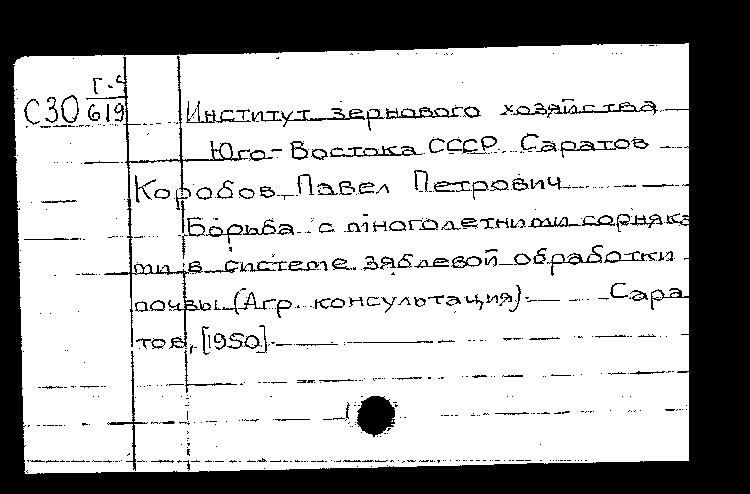 Г-4
С30 619 Институт зернового хозяйства
Юго-Востока СССР. Саратов
Коробов, Павел Петрович
Борьба с многолетними сорняка
ми в системе зяблевой обработки
почвы (Агр. консультация). Сара
тов, [1950].